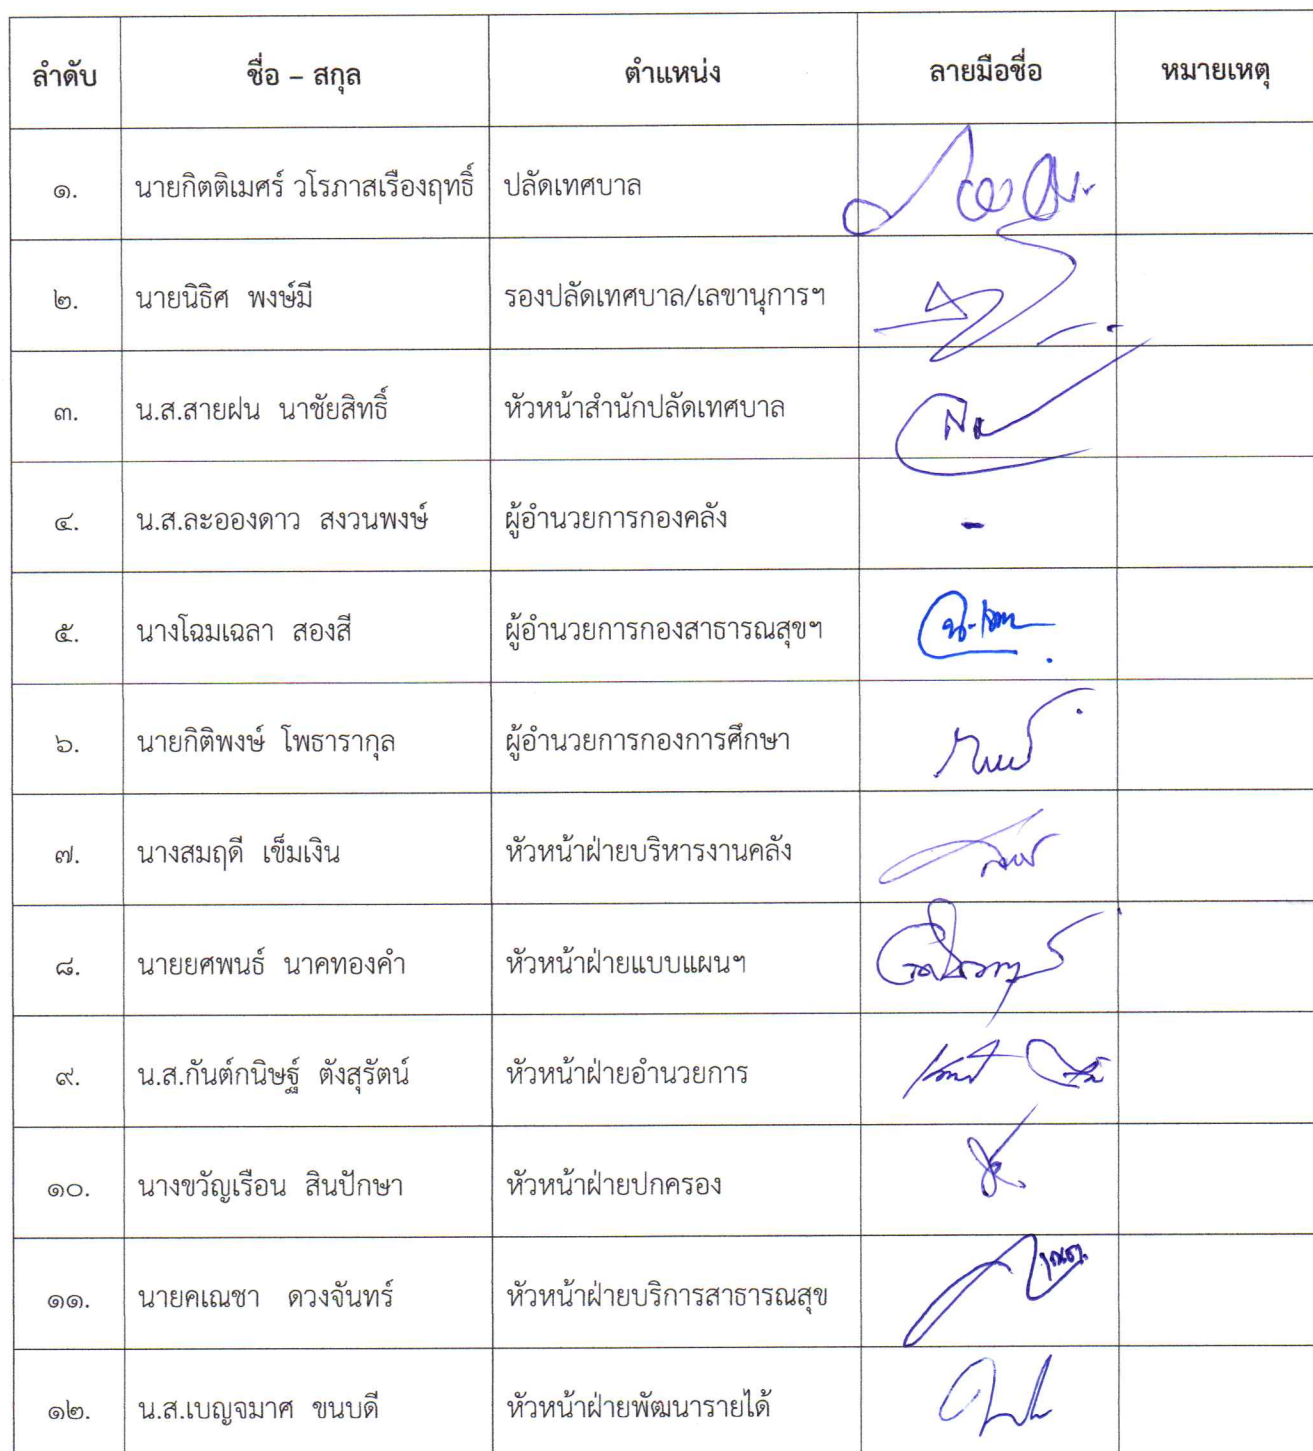 ลำดับ ชื่อ – สกุล ตำแหน่ง ลายมือชื่อ หมายเหตุ
๑. นายกิตติเมศร์ วโรภาสเรืองฤทธิ์ ปลัดเทศบาล
๒. นายนิธิศ พงษ์มี รองปลัดเทศบาล/เลขานุการฯ
๓. น.ส.สายฝน นาชัยสิทธิ์ หัวหน้าสำนักปลัดเทศบาล
๔. น.ส.ละอองดาว สงวนพงษ์ ผู้อำนวยการกองคลัง -
๕. นางโฉมเฉลา สองสี ผู้อำนวยการกองสาธารณสุขฯ
๖. นายกิติพงษ์ โพธารากุล ผู้อำนวยการกองการศึกษา
๗. นางสมฤดี เข็มเงิน หัวหน้าฝ่ายบริหารงานคลัง
๘. นายยศพนธ์ นาคทองคำ หัวหน้าฝ่ายแบบแผนฯ
๙. น.ส.กันต์กนิษฐ์ ตังสุรัตน์ หัวหน้าฝ่ายอำนวยการ
๑๐. นางขวัญเรือน สินปักษา หัวหน้าฝ่ายปกครอง
๑๑. นายคเณชา ดวงจันทร์ หัวหน้าฝ่ายบริการสาธารณสุข
๑๒. น.ส.เบญจมาศ ขนบดี หัวหน้าฝ่ายพัฒนารายได้